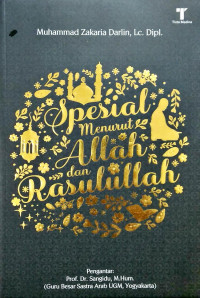 Muhammad Zakaria Darlin, Lc. Dipl.
Spesial
Menurut
Allah
dan
Rasulullah
Pengantar:
Prof. Dr. Sangidu, M.Hum.
(Guru Besar Sastra Arab UGM, Yogyakarta)